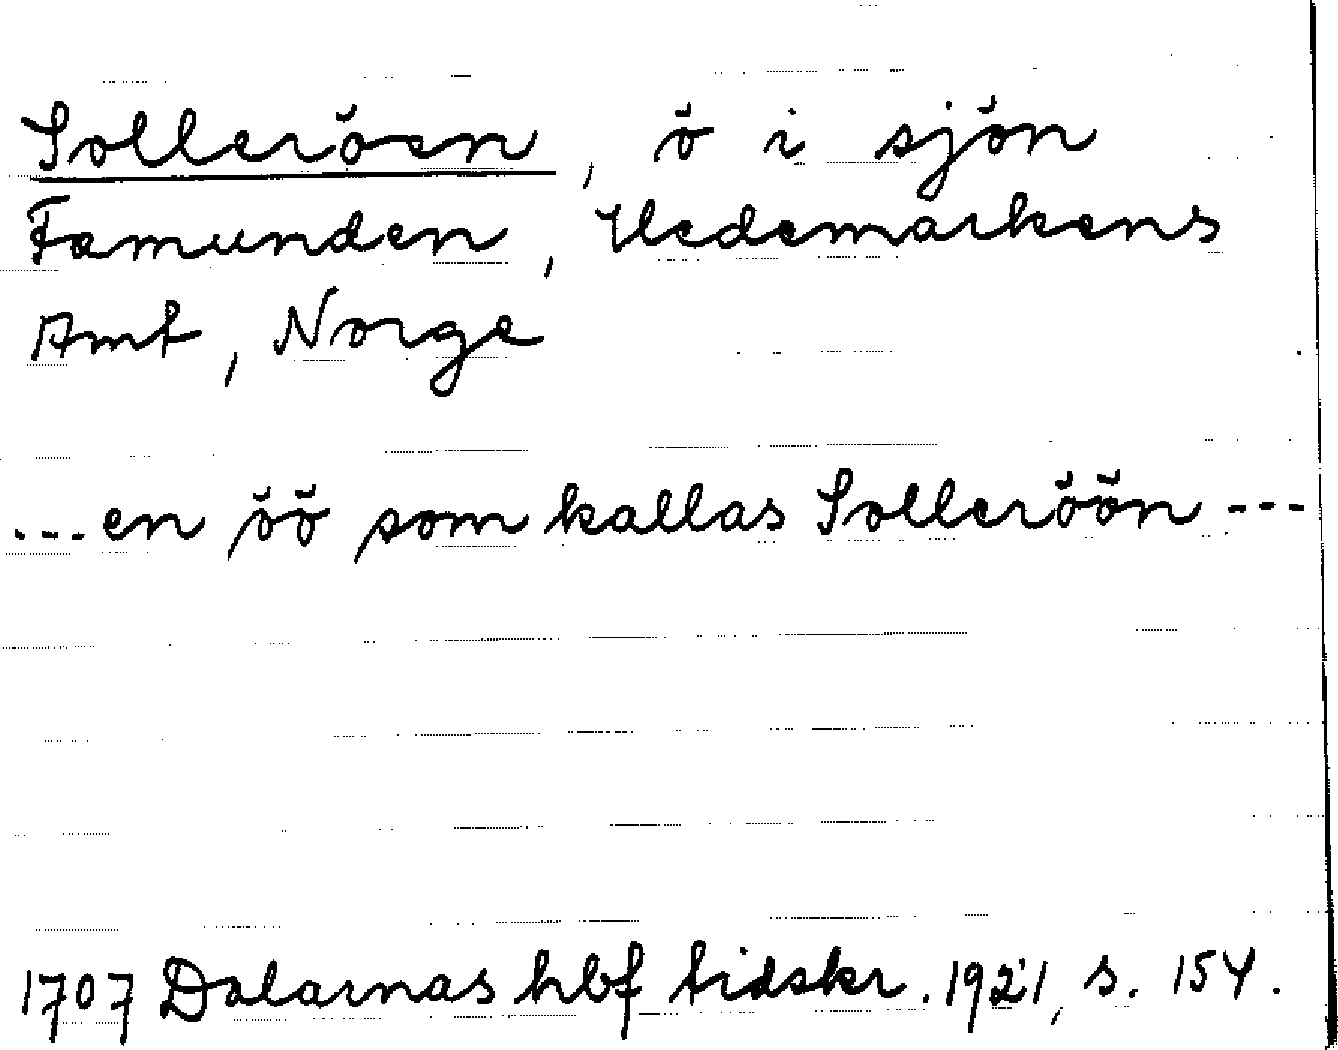 Solleröen, ö i sjön
Famunden, Hedemarkens
Amt, Norge
...en öö som kallas Solleröön ---
1707 Dalarnas hbf tidskr. 1921, s. 154.